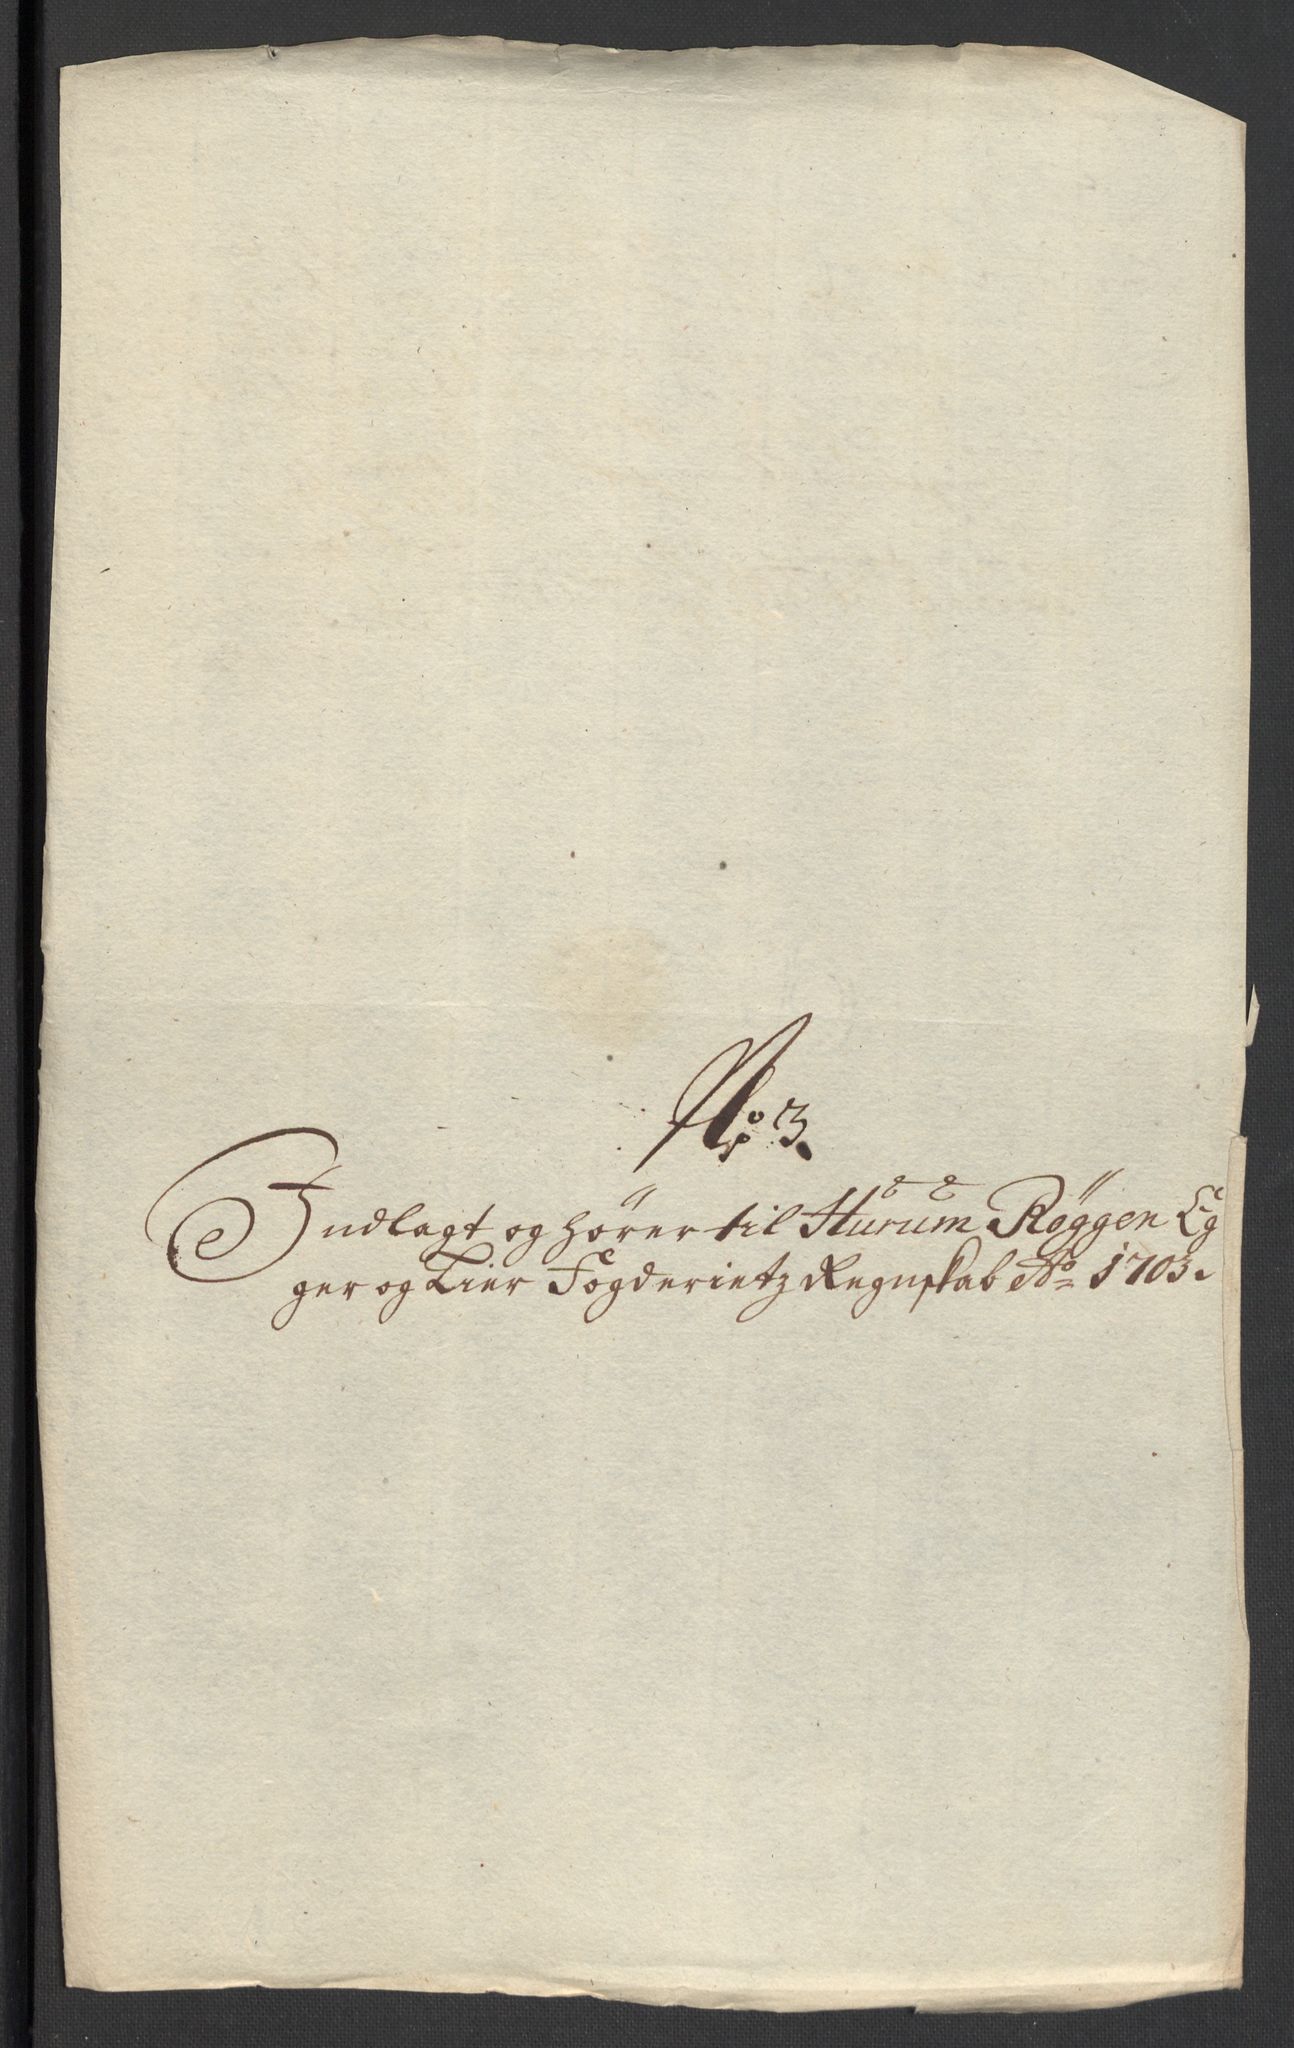 No: 3.
Indlagt og hörer til Hurum Röggen Eg
ger og Lier Fogderietz Regnskab Ao 1703.